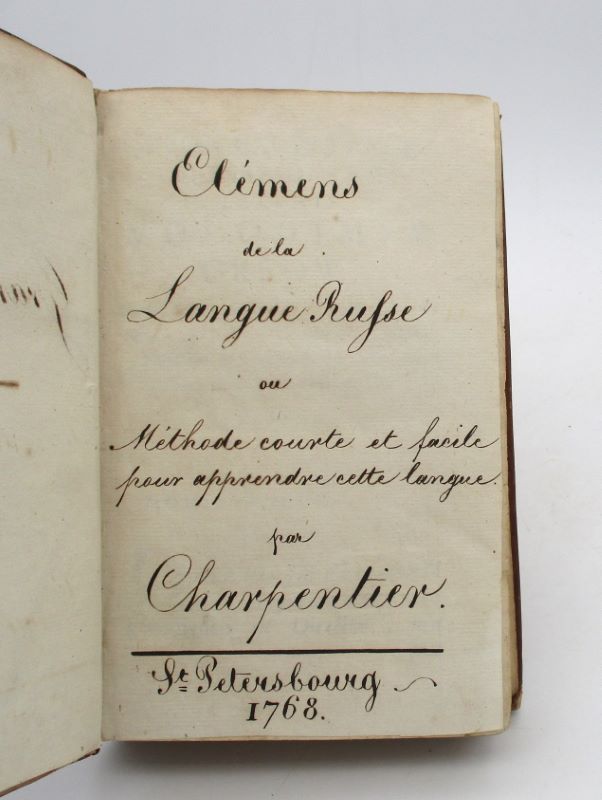 Elémens
de la
Langue Ruſse
ou
Méthode courte et facile
pour apprendre cette langue.
par
Charpentier.
St. Petersbourg
1768.